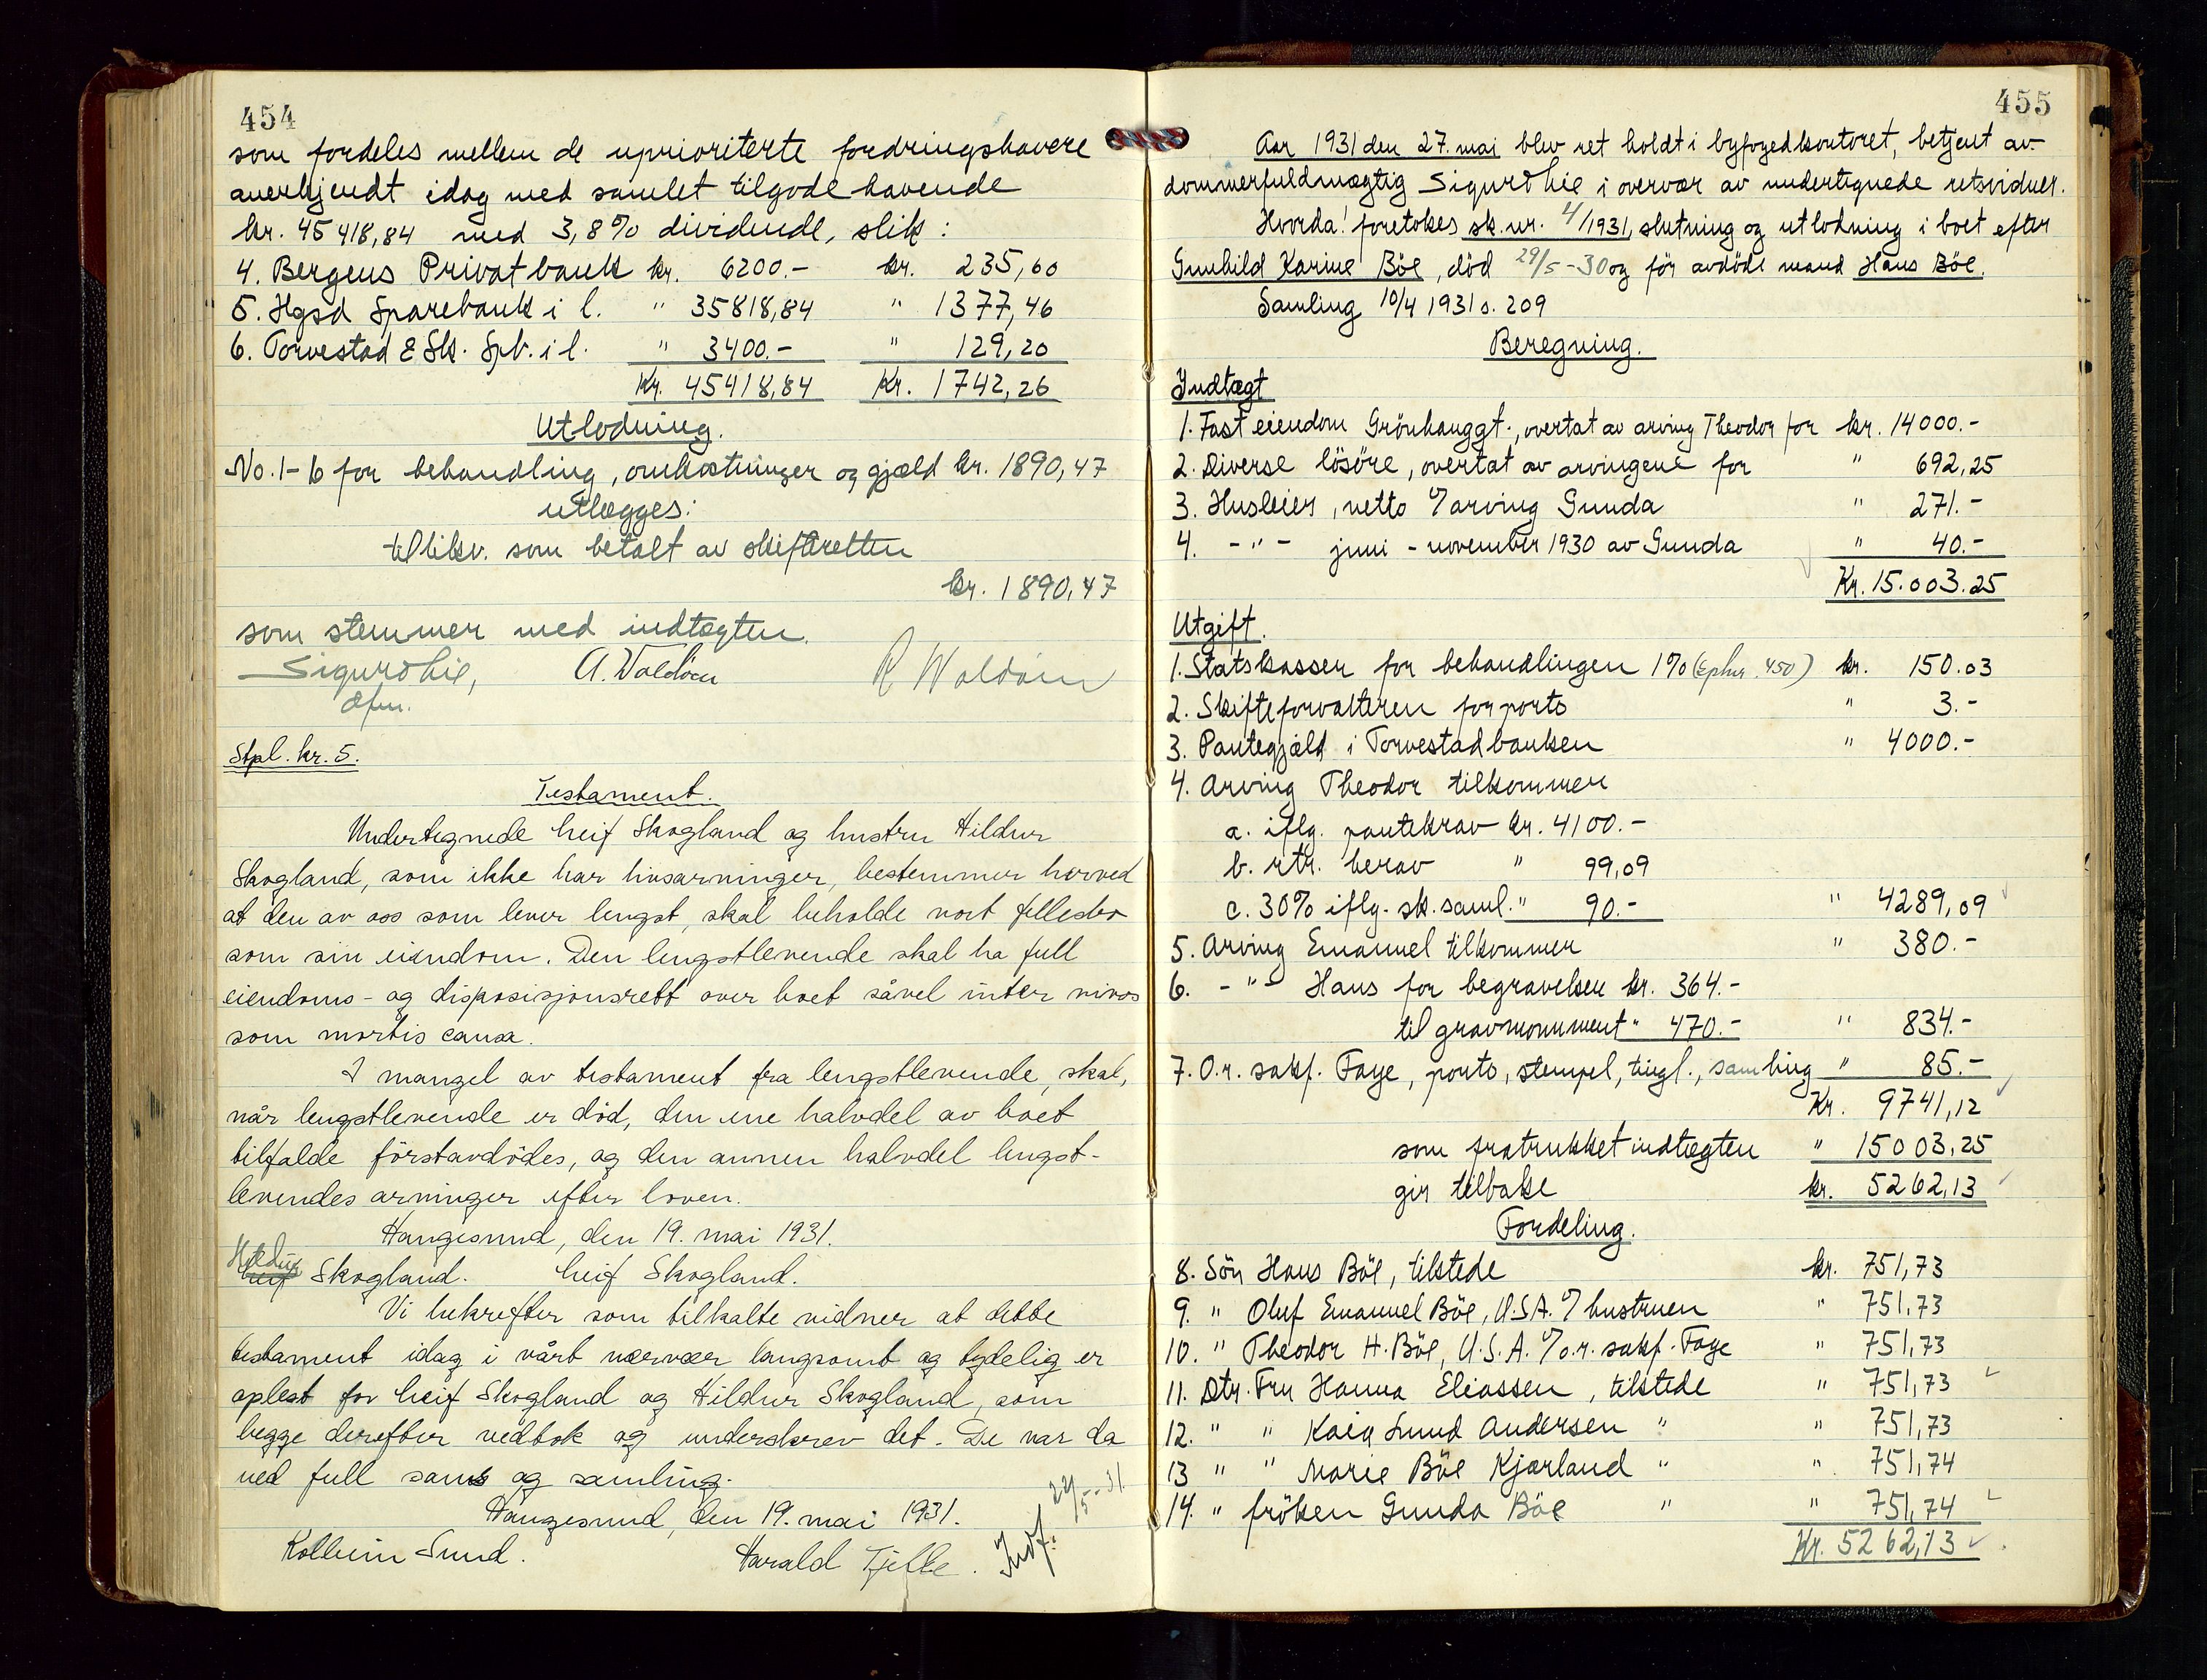 454
som fordeles mellem de uprioriterte fordringshavere
anerkjendt idag med samlet tilgodehavende
kr. 45418,84 med 3,8% dividende, slik:
4. Bergens Privatbank kr. 6200.- kr. 235,60
5. Hgsd Sparebank i l. " 35818,84 " 1377,46
6. Torvestad & Sk. Spb. i l. " 3400.- " 129,20
Kr. 45418,84 Kr. 1742,26
Utlodning.
No. 1-6 for behandling, omkostninger og gjæld kr. 1890,47
utlægges:
tillikv. som betalt av skifteretten
kr. 1890,47
som stemmer med indtægten.
Sigurd Lie, A. Waldöm R Waldöm
dfm.
Stpl. kr. 5.
Testament.
Undertegnede Leif Skogland og hustru Hildur
Skogland, som ikke har livsarvinger, bestemmer herved
at den av oss som lever lengst, skal beholde vort fellesbo
som sin eiendom. Den lengstlevende skal ha full
eiendoms- og disposisjonsrett over boet såvel inter vivos
som mortis causa.
I mangel av testament fra lengstlevende, skal,
når lengstlevende er död, den ene halvdel av boet
tilfalde förstavdödes, og den annen halvdel lengst-
levendes arvinger efter loven.
Haugesund, den 19. mai 1931.
Hildur Leif Skogland. Leif Skogland.
Vi bekrefter som tilkalte vidner at dette
testament idag i vårt nærvær langsomt og tydelig er
oplest for Leif Skogland og Hildur Skogland, som
begge derefter vedtok og underskrev det. De var da
ved full sans og samling.
Haugesund, den 19. mai 1931.
Kolbein Sund. Harald Tjelle. Indf. 29/5-31
455
Aar 1931 den 27. mai blev ret holdt i byfogedkontoret, betjent av
dommerfuldmægtig Sigurd Lie i overvær av undertegnede retsvidner.
Hvorda! foretokes sk. nr. 4/1931, slutning og utlodning i boet efter
Gunhild Karine Böe, död 29/5-30 og för avdöde mand Hans Böe.
Samling 10/4 1931 s. 209
Beregning.
Indtægt
1. Fast eiendom Grönhauggt., overtat av arving Theodor for kr. 14000.-
2. Diverse lösöre, overtat av arvingene for " 692,25
3. Husleier, netto v/ arving Gunda " 271.-
4. - " - juni - november 1930 av Gunda " 40.-
Kr. 15.003.25
Utgift.
1. Statskassen for behandlingen 1% ( 450) kr. 150.03
2. Skifteforvalteren for porto " 3.-
3. Pantegjæld i Torvestadbanken " 4000.-
4. Arving Theodor tilkommer
a. iflg. pantekrav kr. 4100.-
b. rtr. herav " 99,09
c. 30% iflg. sk. saml. " 90.- " 4289,09
5. Arving Emanuel tilkommer " 380.-
6. - " - Hans for begravelsen kr. 364.-
til gravmonument " 470.- " 834.-
7. O.r. sakf. Faye, porto, stempel, tingl., samling " 85.-
Kr. 9741,12
som fratrukket indtægten " 15003,25
gir tilbake kr. 5262,13
Fordeling.
8. Sön Hans Böe, tilstede kr. 751,73
9. " Oluf Emanuel Böe, U.S.A. v/ hustruen " 751,73
10. " Theodor H. Böe, U.S.A. v/ o.r. sakf. Faye " 751,73
11. Dtr. Fru Hanna Eliassen, tilstede " 751,73
12. " " Kaia Lund Andersen " " 751,73
13 " " Marie Böe Kjærland " " 751,74
14. " fröken Gunda Böe " " 751,74
Kr. 5262,13